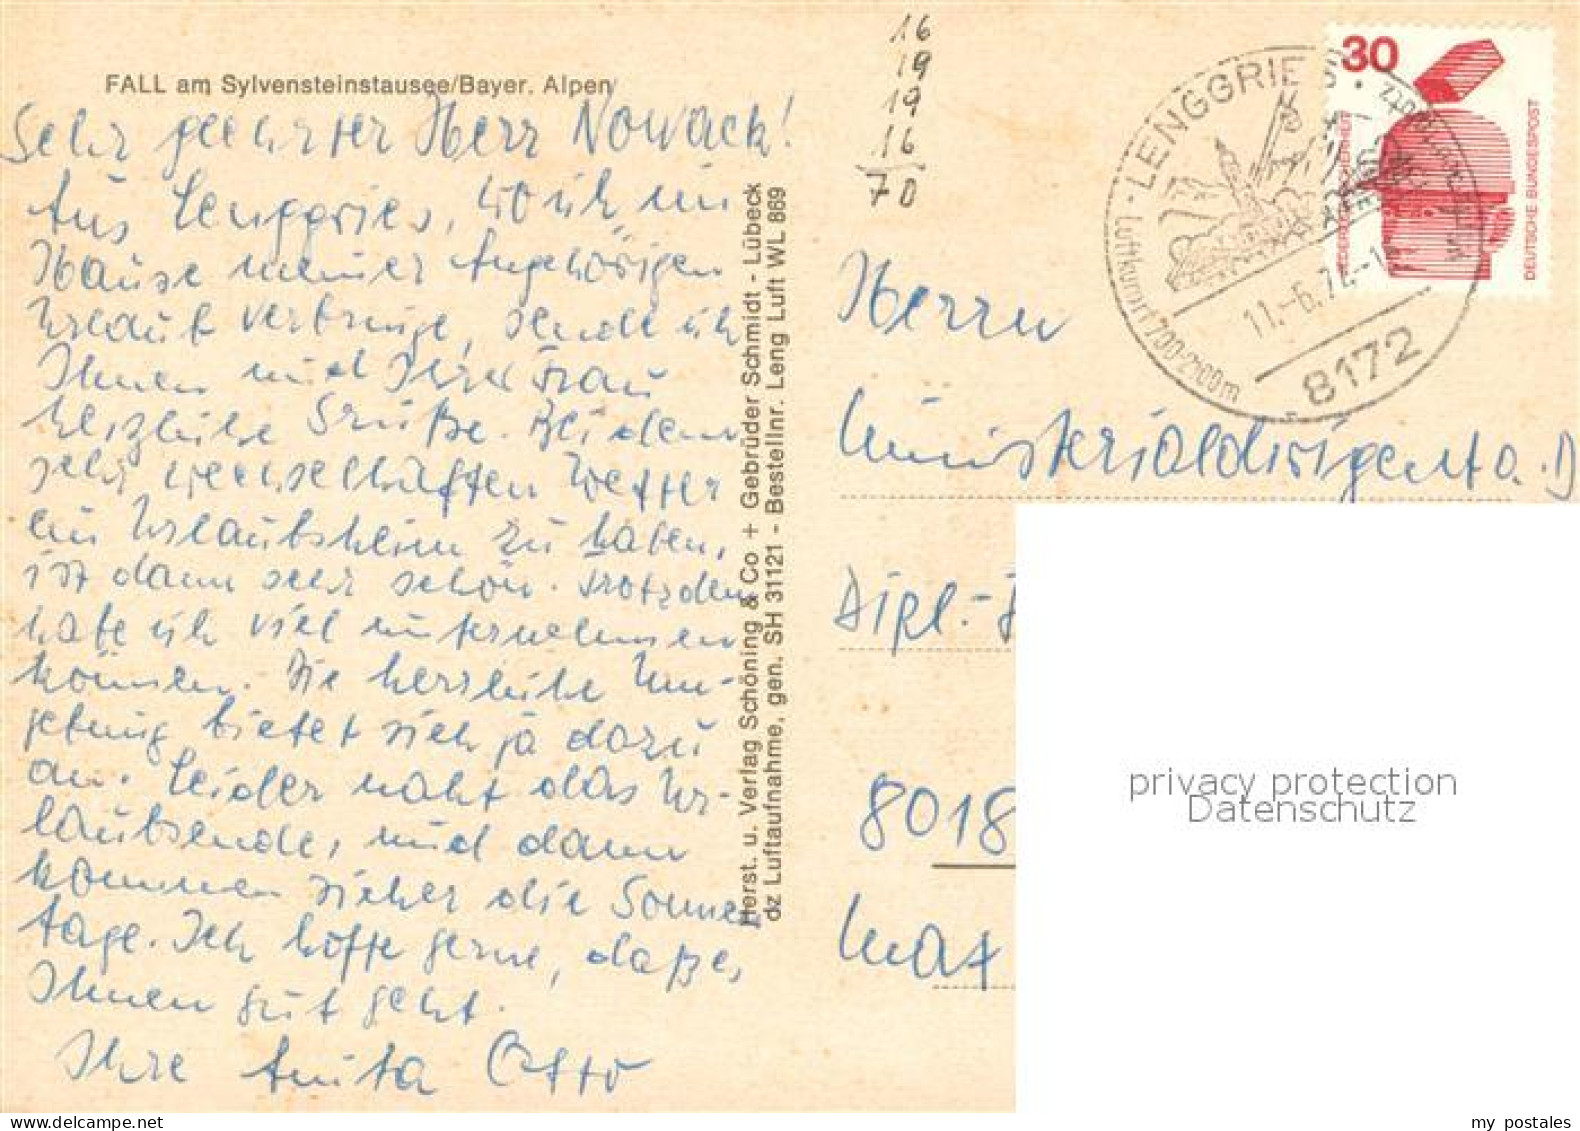 FALL am Sylvensteinstausee/Bayer. Alpen
Sehr geehrter Herr Nowack!
Aus Lenggries, wo ich im
Hause meiner Angehörigen
Urlaub verbringe, sende ich
Ihnen und Ihrer Frau
herzliche Grüße. Bei dem
sehr wechselhaften Wetter
ein Urlaubsheim zu haben,
ist dann sehr schön. Trotzdem
habe ich viel unternehmen
können. Die herrliche Um-
gebung bietet sich ja dazu
an. Leider naht das Ur-
laubsende, und dann
kommen sicher die Sonnen
tage. Ich hoffe gerne, daß es
Ihnen gut geht.
Ihre Anita Otto
Herst. u. Verlag Schöning & Co + Gebrüder Schmidt - Lübeck
dz Luftaufnahme, gen. SH 31121 - Bestellnr. Leng Luft WL 869
16
19
19
16
70
LENGGRIES
Luftkurort 700-2100m
11.-6.72.-1
8172
30
DEUTSCHE BUNDESPOST
Herrn
Ministerialdirigent a. D
Dipl.-
8018
privacy protection
Datenschutz
my postales